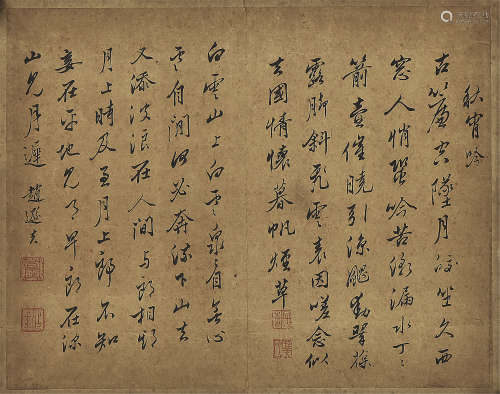 秋宵吟
古簾空墜月皎坐久西
窗人悄蛩吟苦漸漏水丁丁
箭壺催曉引涼颸動翠葆
露腳斜飛雲表因嗟念似
去國情懷暮帆煙草
白雲山上白雲泉自無心
雲自閒何必奔流下山去
又添波浪在人間与郎相期
月上時及至月上郎不知
妾在平地見月早郎在深
山見月遲 趙